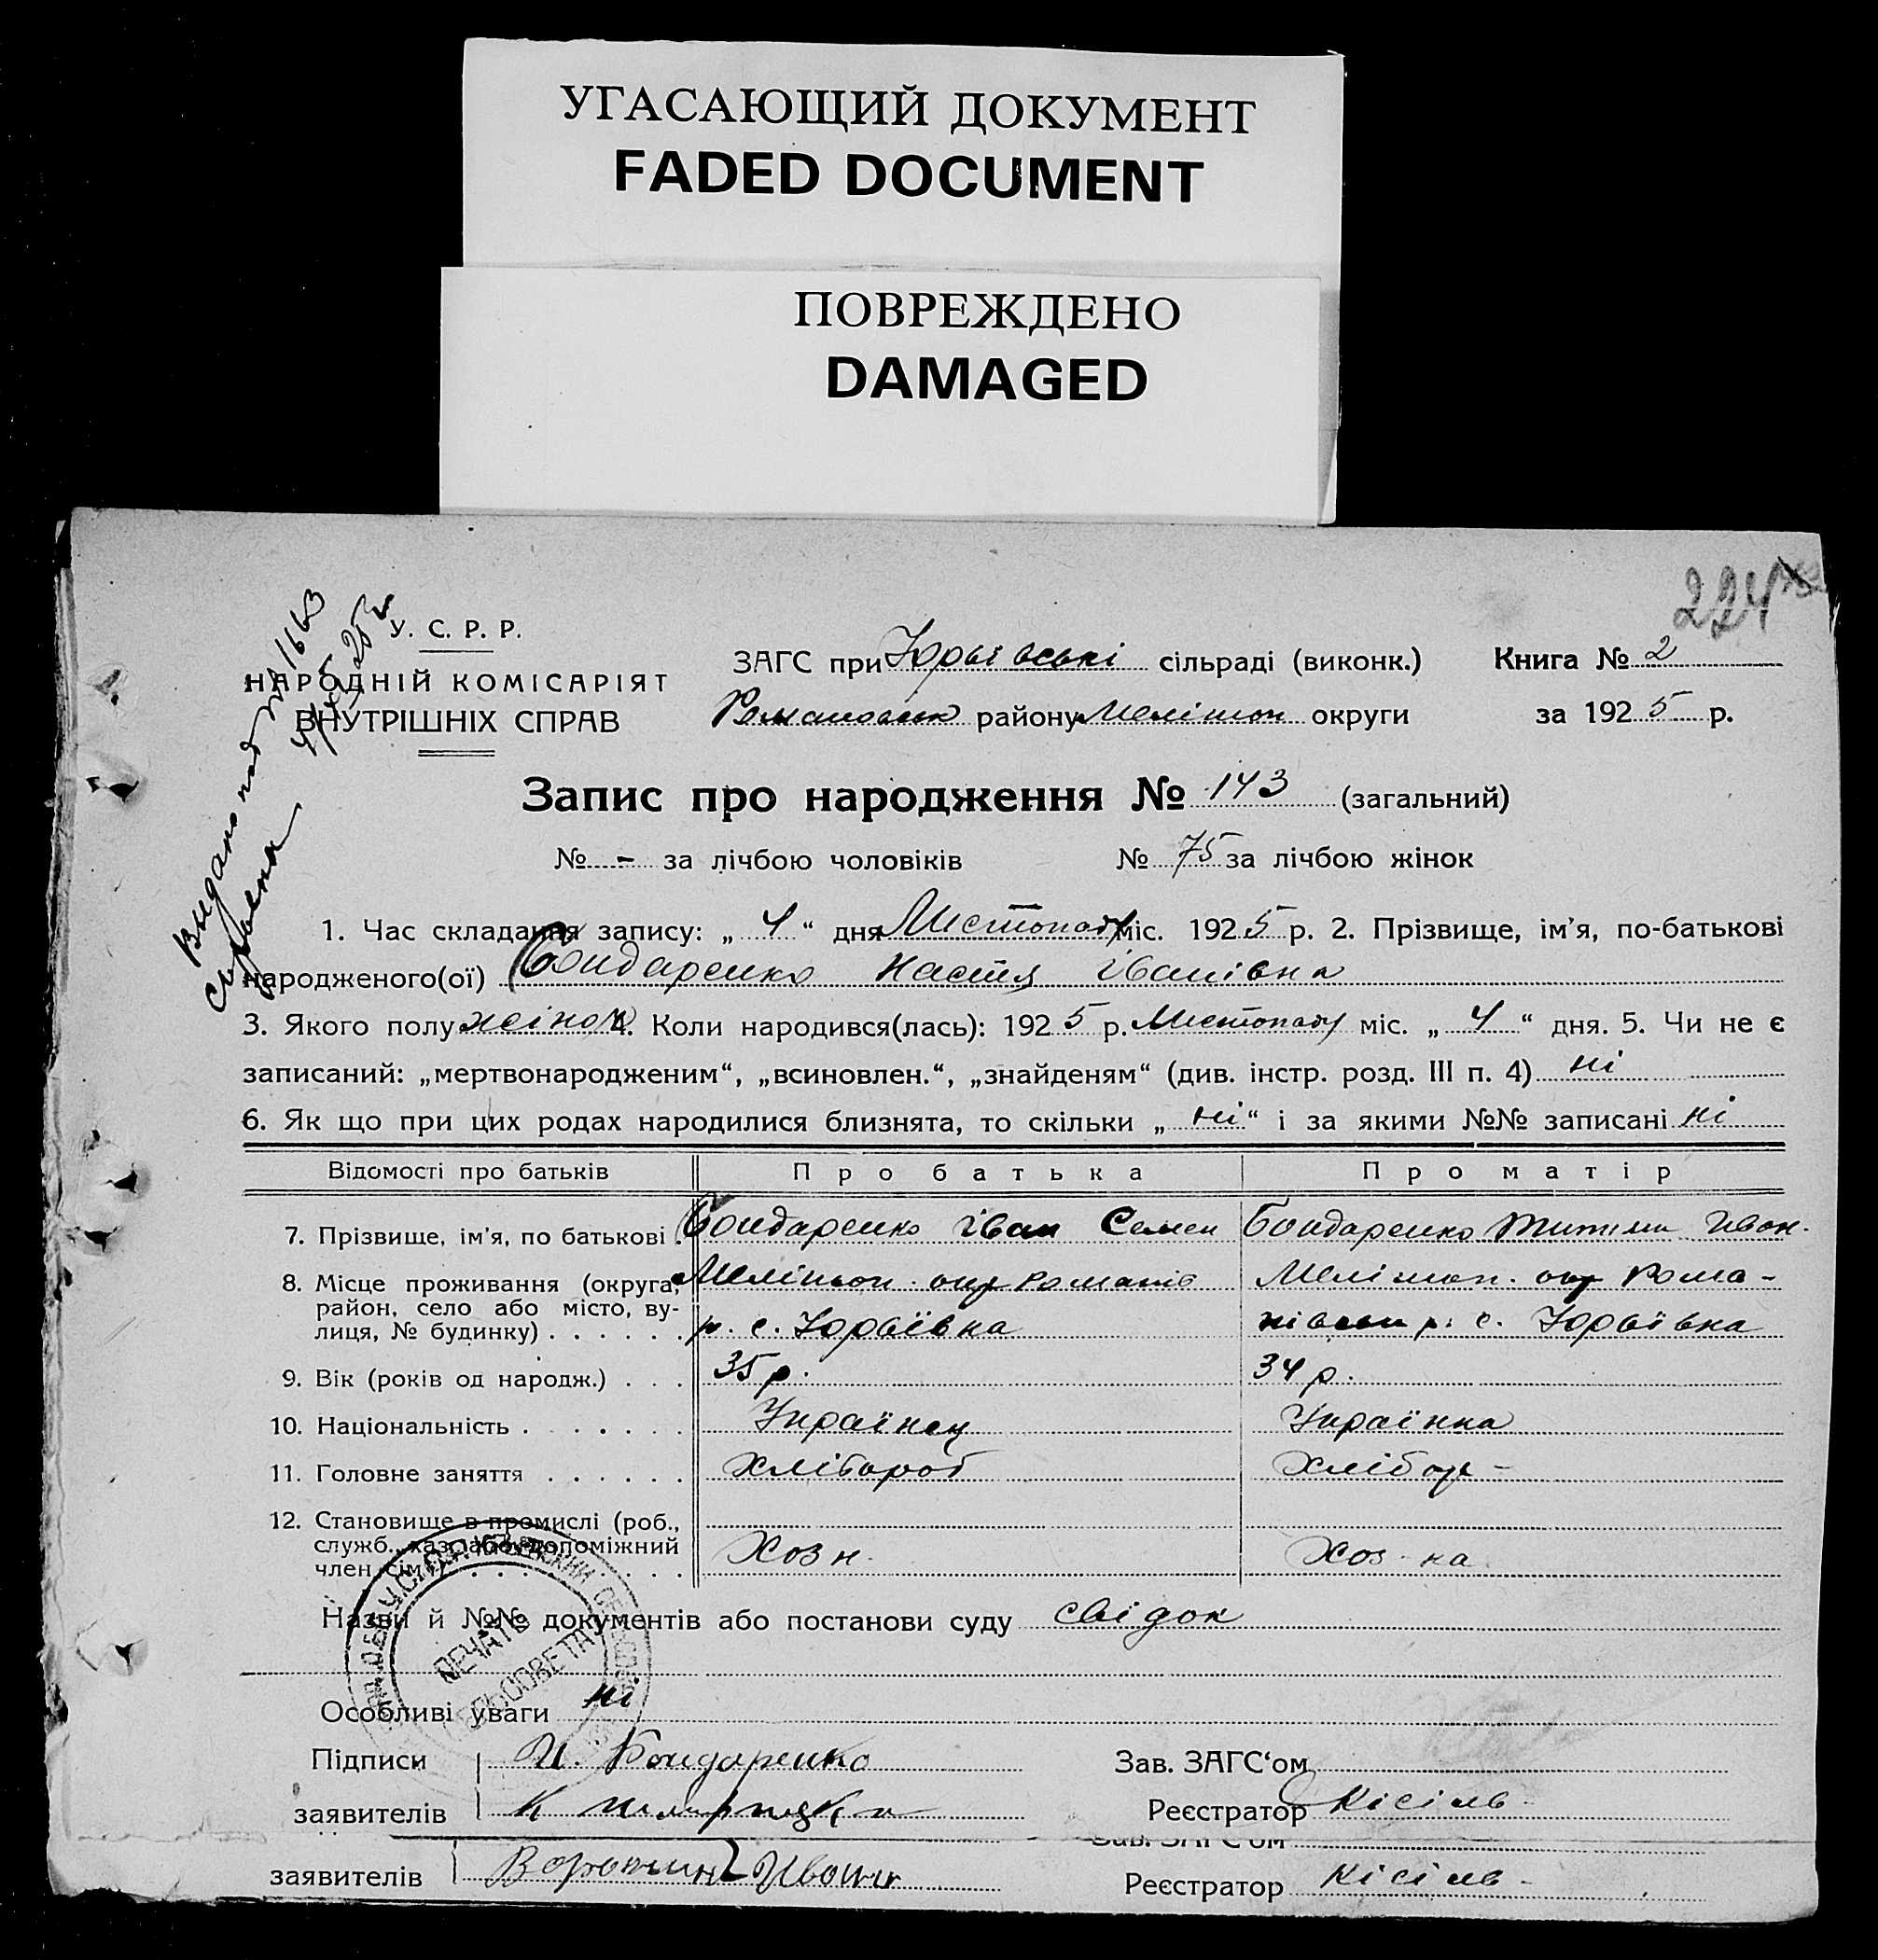 УГАСАЮЩИЙ ДОКУМЕНТ
FADED DOCUMENT
ПОВРЕЖДЕНО
DAMAGED
224
У. С. Р. Р.
НАРОДНІЙ КОМІСАРІЯТ
ВНУТРІШНІХ СПРАВ
Видано под № 1663
ЗАГС при Юрьївські сільраді (виконк.) Книга № 2
Романовськ району Мелітоп округи за 1925 р.
Запис про народження № 143 (загальний)
№ - за лічбою чоловіків № 75 за лічбою жінок
1. Час складання запису: „ 4 “ дня Листопаду міс. 1925 р. 2. Прізвище, ім’я, по-батькові
народженого(ої) Бондаренко Настя Іванівна
3. Якого полу жіноч. 4. Коли народився(лась): 1925 р. Листопаду міс. „ 4 “ дня. 5. Чи не є
записаний: „мертвонародженим“, „всиновлен.“, „знайденям“ (див. інстр. розд. III п. 4) ні
6. Як що при цих родах народилися близнята, то скільки „ ні “ і за якими №№ записані ні
Відомості про батьків Про батька Про матір
7. Прізвище, ім’я, по батькові . Бондаренко Іван Семен Бондаренко Ивон.
8. Місце проживання (округа, район, село або місто, вулиця, № будинку) . . . . . . Мелітоп. окр Романів Мелітоп. окр Рома-
р. с. Юрьївка нівськ р. с. Юрьївка
9. Вік (років од народж.) . . . 35 р. 34 р.
10. Національність . . . . . . . Українец Українка
11. Головне заняття . . . . . . Хлібороб Хлібор-
12. Становище в промислі (роб.,
служб., хаз. або допоміжний
член сім’ї) . . . . . . . . . Хозн. Хоз-ка
Назви й №№ документів або постанови суду свідок
ПЕЧАТЬ
СЕЛЬСОВЕТА
Особливі уваги ні
Підписи И. Бондаренко Зав. ЗАГС‘ом
заявителів К Реєстратор Кісіль
Зав. ЗАГС‘ом
заявителів Ивони Реєстратор Кісіль